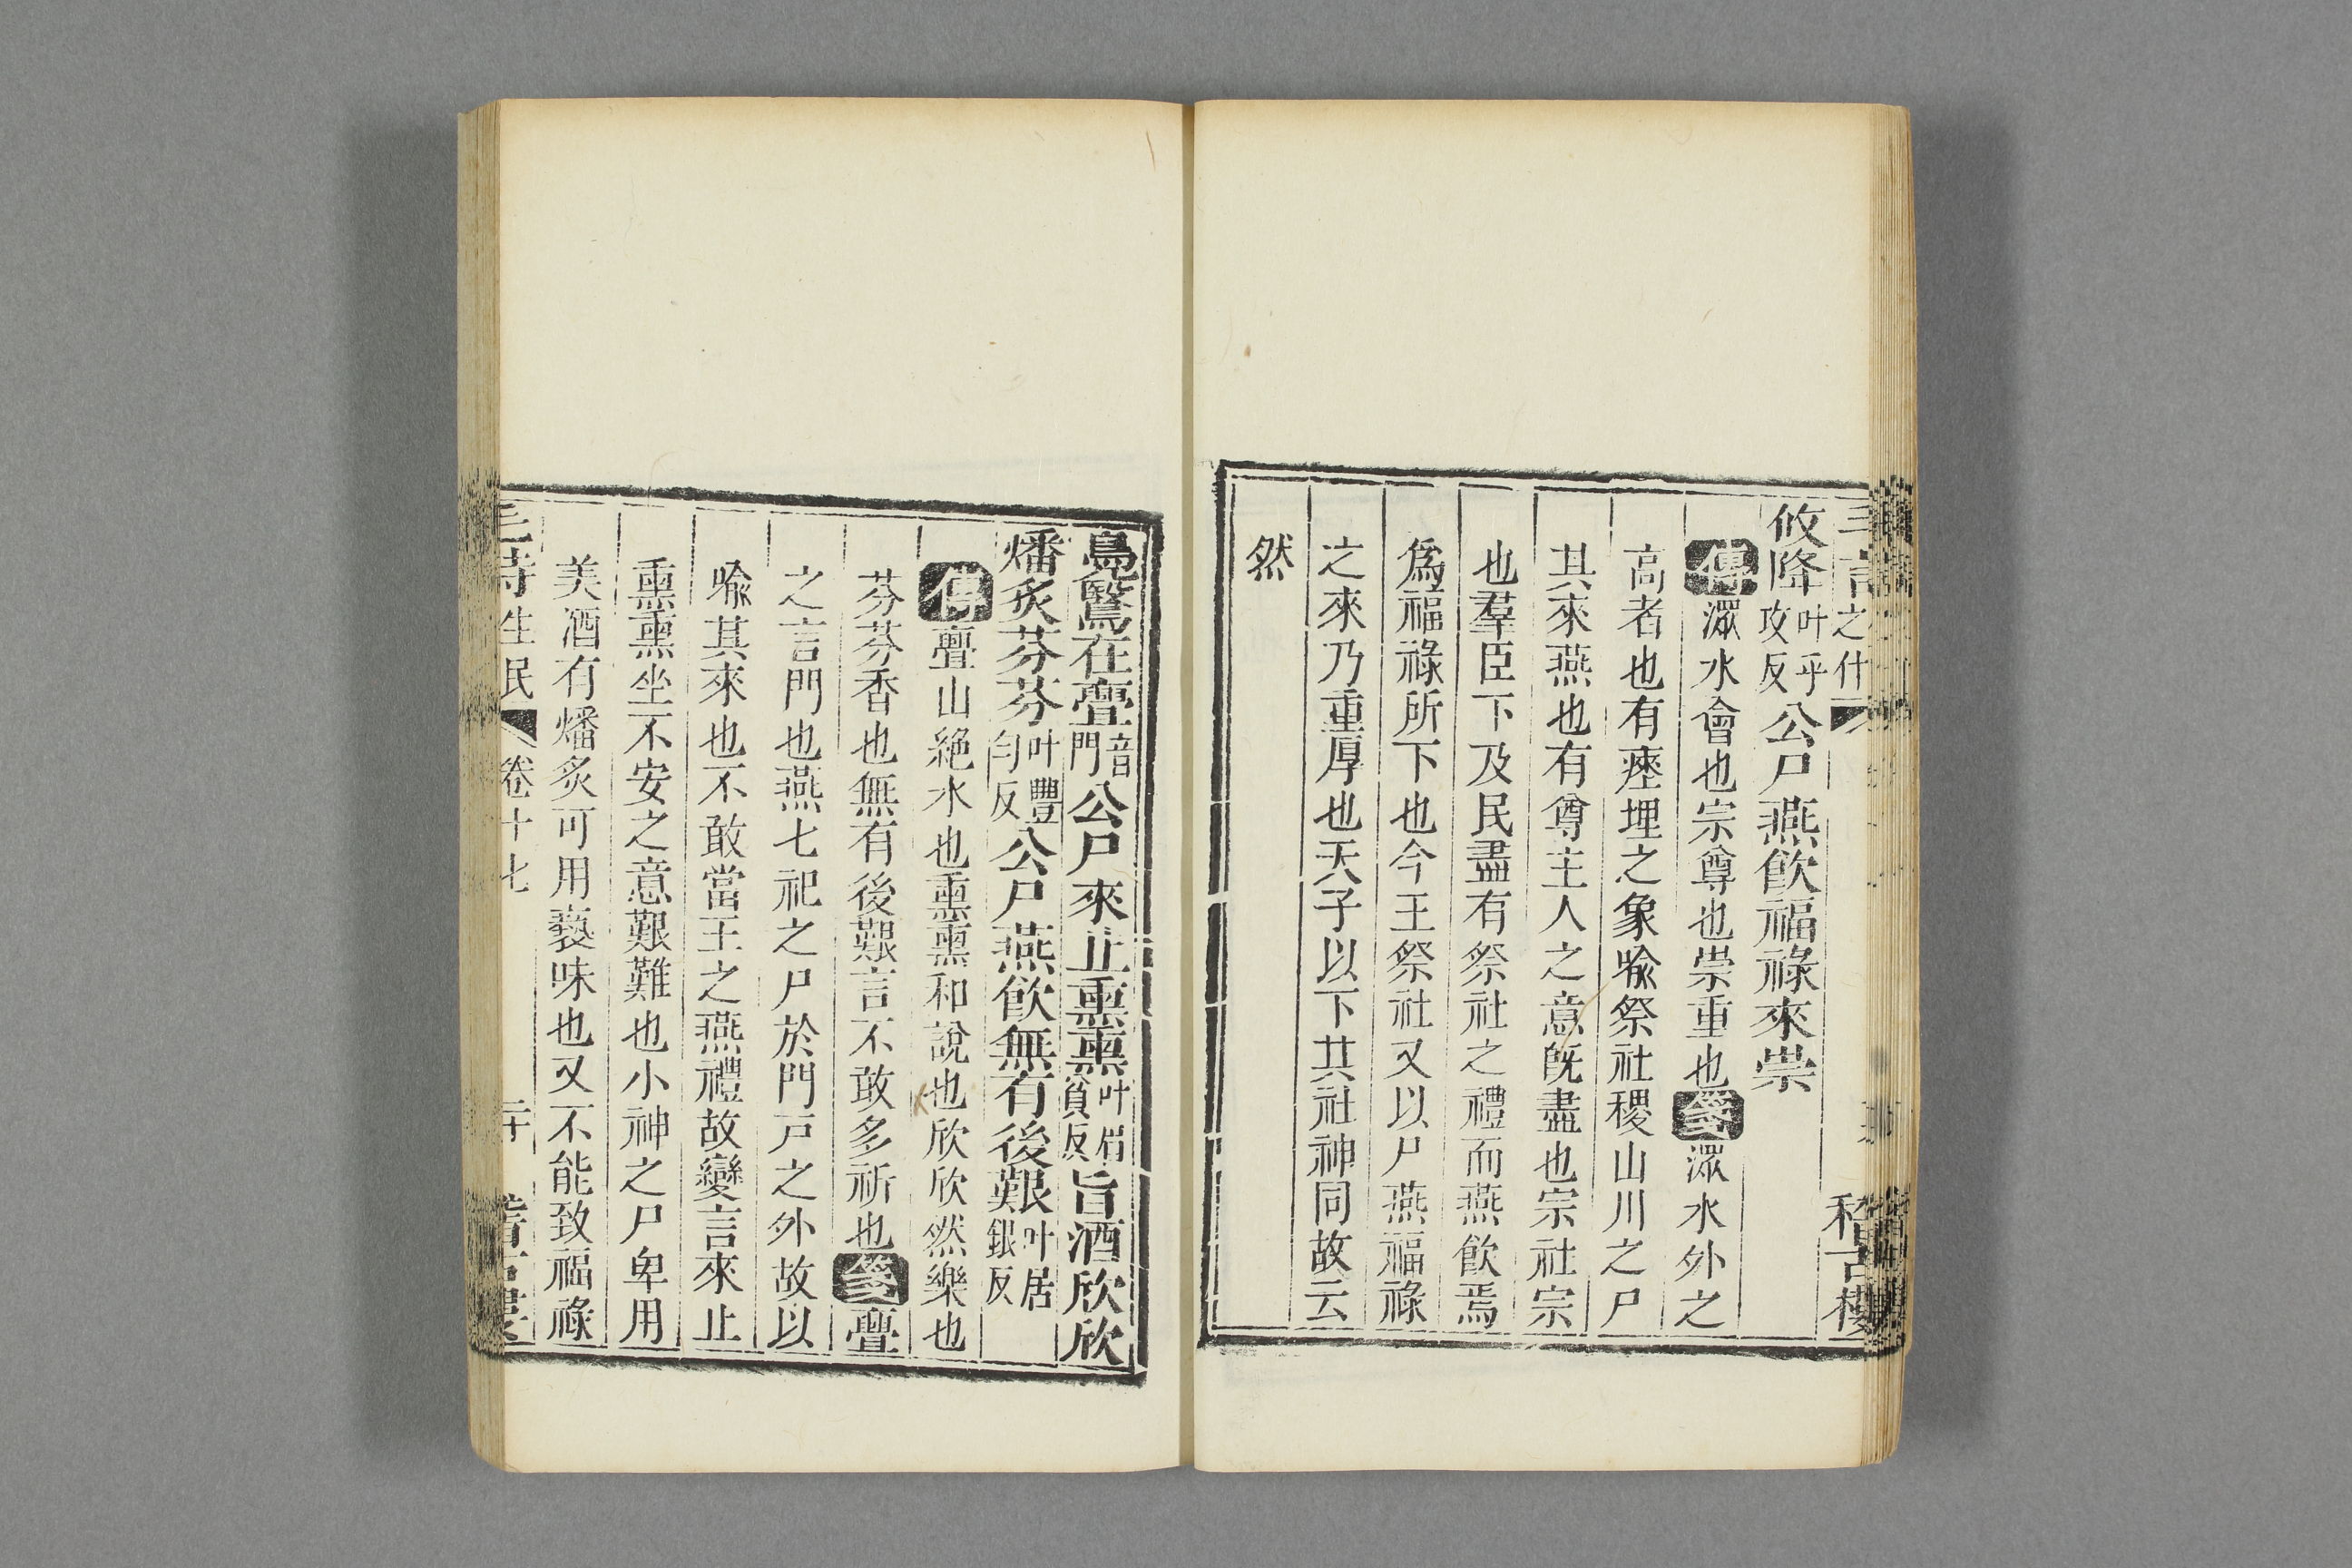 攸降叶乎攻反公尸燕飲福祿來崇
傳潀水會也宗尊也崇重也箋潀水外之
高者也有瘞埋之象喻祭社稷山川之尸
其來燕也有尊主人之意旣盡也宗社宗
也羣臣下及民盡有祭社之禮而燕飲焉
爲福祿所下也今王祭社又以尸燕福祿
之來乃重厚也天子以下其社神同故云
然
鳧鷖在亹音門公尸來止熏熏叶眉貧反旨酒欣欣
燔炙芬芬叶豐勻反公尸燕飲無有後艱叶居銀反
傳亹山絶水也熏熏和說也欣欣然樂也
芬芬香也無有後艱言不敢多祈也箋亹
之言門也燕七祀之尸於門戸之外故以
喻其來也不敢當王之燕禮故變言來止
熏熏坐不安之意艱難也小神之尸卑用
美酒有燔炙可用褻味也又不能致福祿
毛詩生民 卷十七 二十